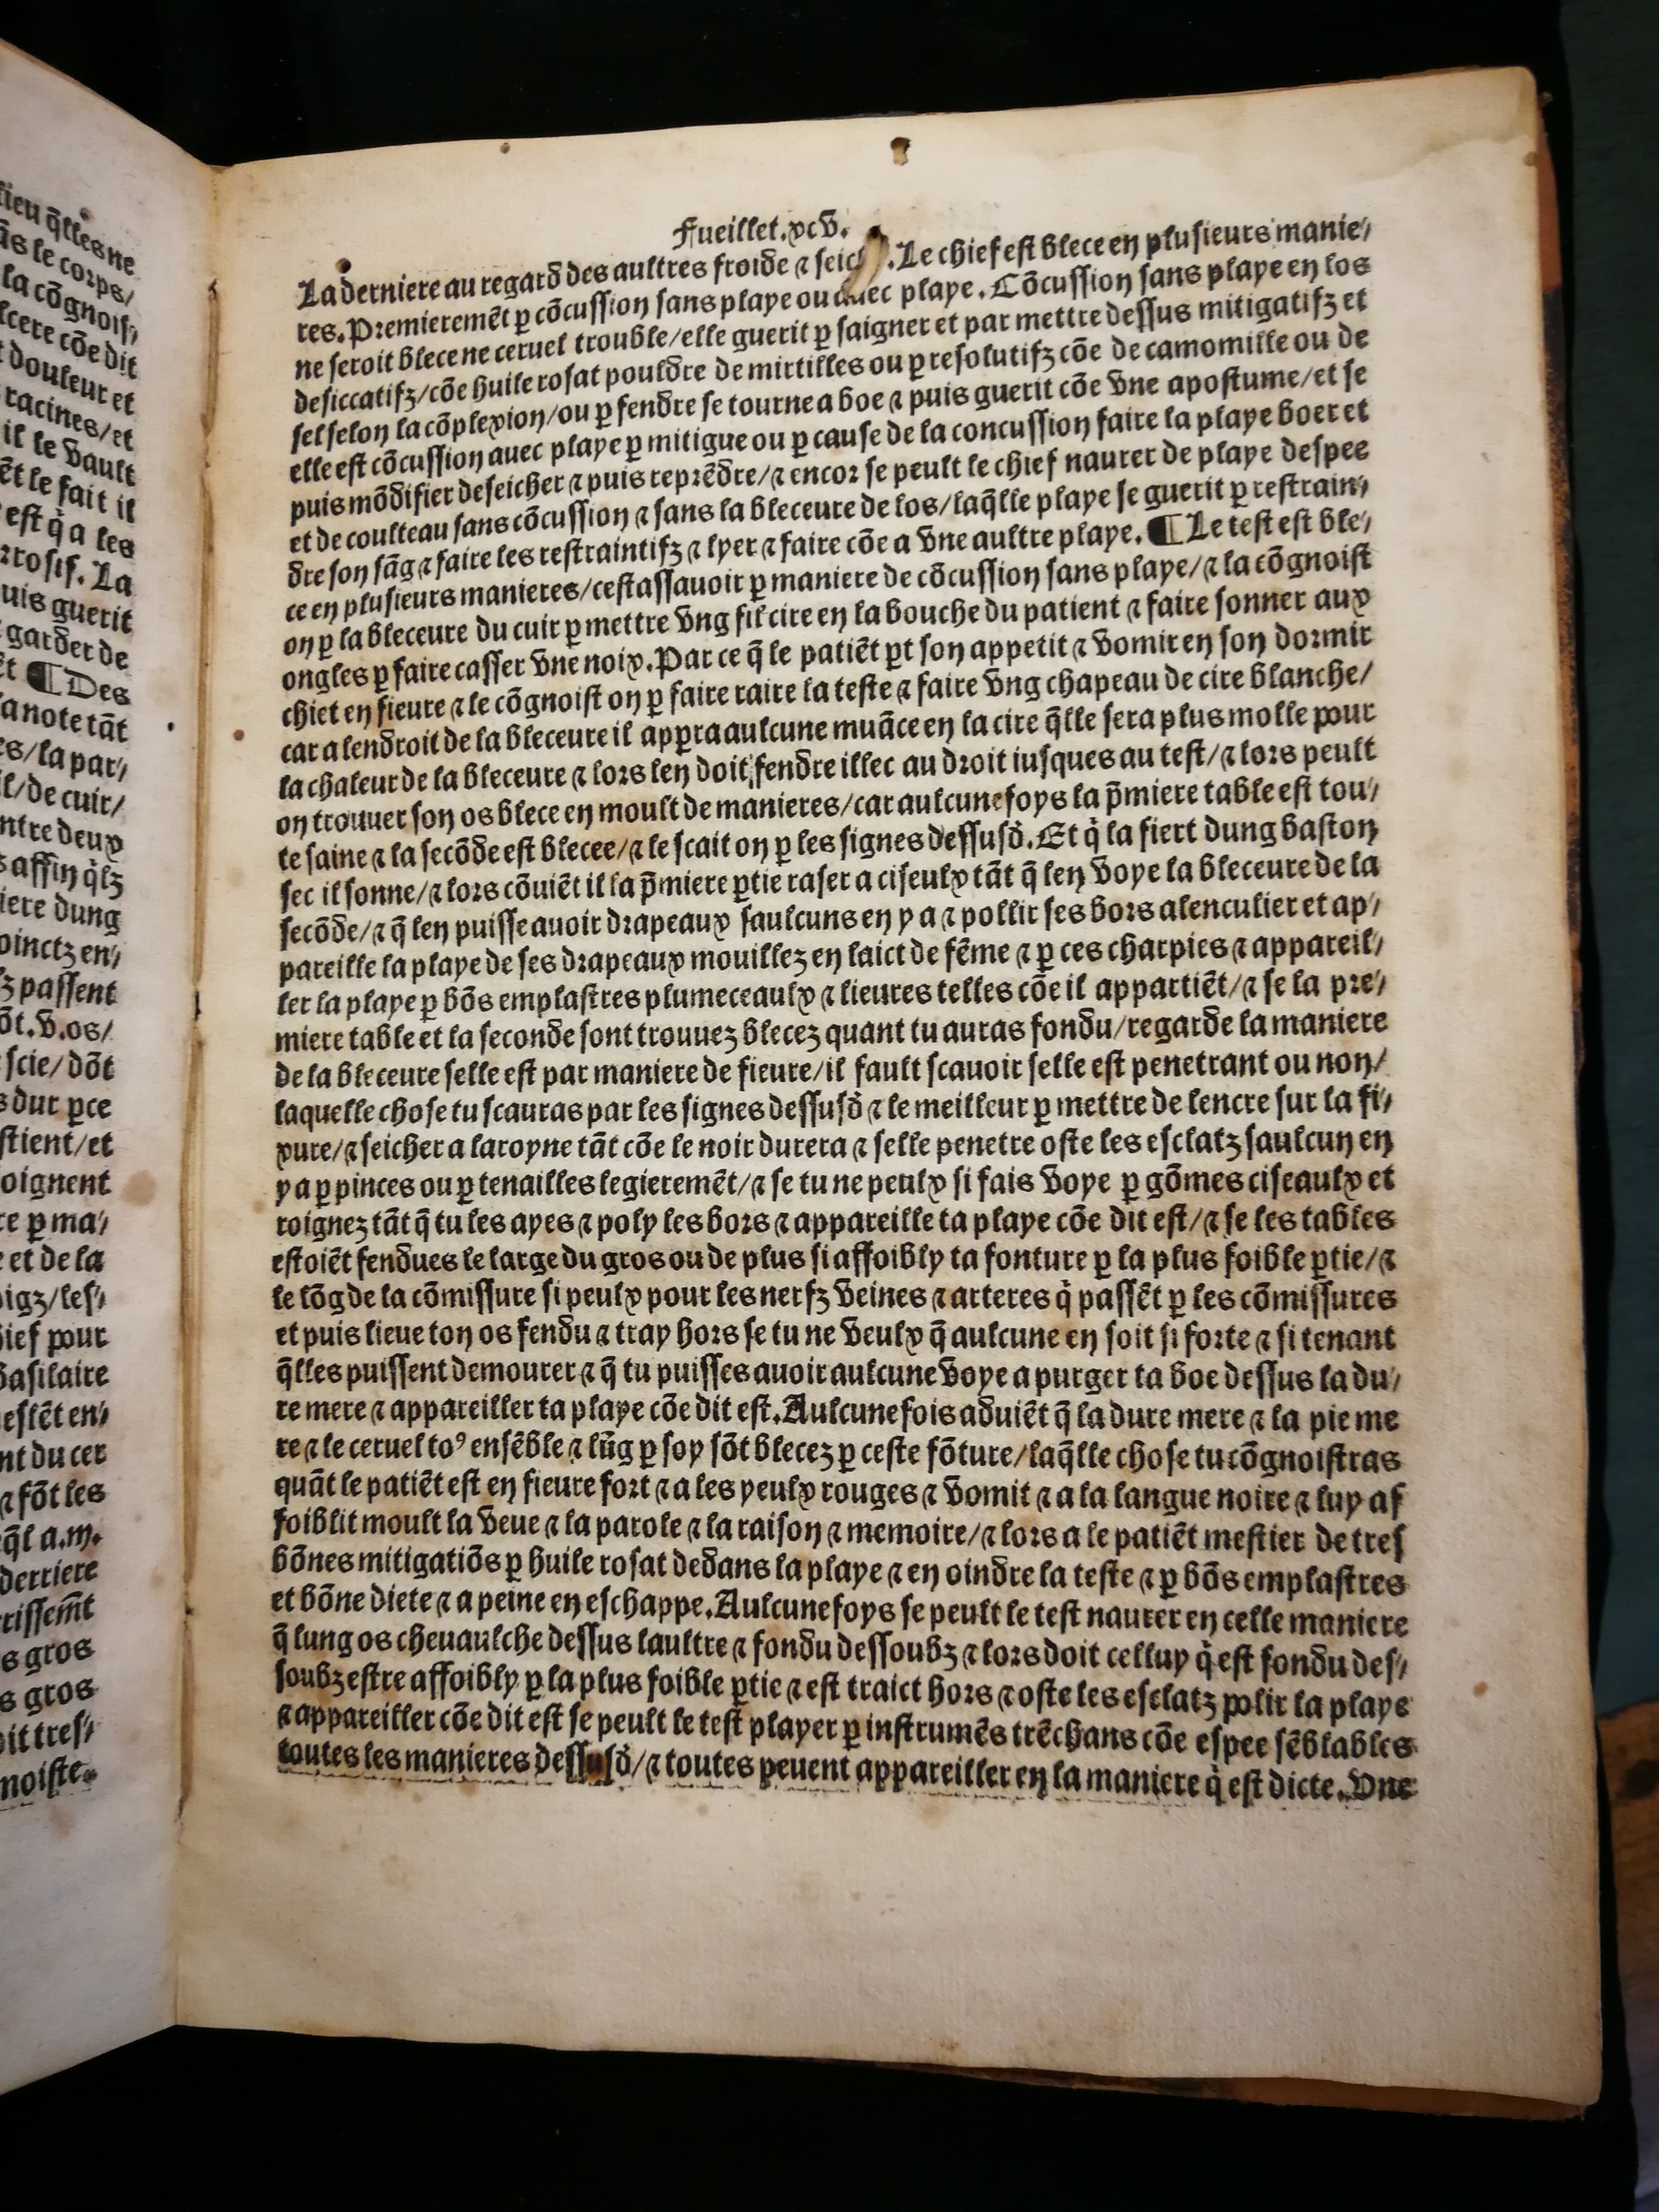 Fueillet.xcv.
La derniere au regard des aultres froide ⁊ seic . Le chief est blece en plusieurs manie/
res. Premieremēt ꝑ cōcussion sans playe ou auec playe. Cōcussion sans playe en los
ne seroit blece ne ceruel trouble/elle guerit ꝑ saigner et par mettre dessus mitigatifz et
desiccatifz/cōe huile rosat pouldre de mirtilles ou ꝑ resolutifz cōe de camomille ou de
sel selon la cōplexion/ou ꝑ fendre se tourne a boe ⁊ puis guerit cōe vne apostume/et se
elle est cōcussion auec playe ꝑ mitigue ou ꝑ cause de la concussion faire la playe boer et
puis mōdifier deseicher ⁊ puis reprēdre/⁊ encor se peult le chief naurer de playe despee
et de coulteau sans cōcussion ⁊ sans la bleceure de los/laq̄lle playe se guerit ꝑ restrain/
dre son sāg ⁊ faire les restraintifz ⁊ lyer ⁊ faire cōe a vne aultre playe. ¶ Le test est ble/
ce en plusieurs manieres/cestassauoir ꝑ maniere de cōcussion sans playe/⁊ la cōgnoist
on ꝑ la bleceure du cuir ꝑ mettre vng fil cire en la bouche du patient ⁊ faire sonner aux
ongles ꝑ faire casser vne noix. Par ce q̄ le patiēt ꝑt son appetit ⁊ vomir en son dormir
chiet en fieure ⁊ le cōgnoist on ꝑ faire raire la teste ⁊ faire vng chapeau de cire blanche/
car a lendroit de la bleceure il apꝑra aulcune muāce en la cire q̄lle sera plus molle pour
la chaleur de la bleceure ⁊ lors len doit fendre illec au droit iusques au test/⁊ lors peult
on trouuer son os blece en moult de manieres/car aulcunefoys la p̄miere table est tou/
te saine ⁊ la secōde est blecee/⁊ le scait on ꝑ les signes dessusd̛. Et q̇ la fiert dung baston
sec il sonne/⁊ lors cōuiēt il la p̄miere ꝑtie raser a ciseulx tāt q̄ len voye la bleceure de la
secōde/⁊ q̄ len puisse auoir drapeaux saulcuns en y a ⁊ pollir ses bors alenculier et ap/
pareille la playe de ses drapeaux mouillez en laict de fēme ⁊ ꝑ ces charpies ⁊ appareil/
ler la playe ꝑ bōs emplastres plumeceaulx ⁊ lieures telles cōe il appartiēt/⁊ se la pre/
miere table et la seconde sont trouuez blecez quant tu auras fondu/regarde la maniere
de la bleceure selle est par maniere de fieure/il fault scauoir selle est penetrant ou non/
laquelle chose tu scauras par les signes dessusd̛ ⁊ le meilleur ꝑ mettre de lencre sur la fi/
xure/⁊ seicher a laroyne tāt cōe le noir durera ⁊ selle penetre oste les esclatz saulcun en
y a ꝑ pinces ou ꝑ tenailles legieremēt/⁊ se tu ne peulx si fais voye ꝑ gōmes ciseaulx et
roignez tāt q̄ tu les ayes ⁊ poly les bors ⁊ appareille ta playe cōe dit est/⁊ se les tables
estoiēt fendues le large du gros ou de plus si affoibly ta fonture ꝑ la plus foible ꝑtie/⁊
le lōg de la cōmissure si peulx pour les nerfz veines ⁊ arteres q̇ passēt ꝑ les cōmissures
et puis lieue ton os fendu ⁊ tray hors se tu ne veulx q̄ aulcune en soit si forte ⁊ si tenant
q̄lles puissent demourer ⁊ q̄ tu puisses auoir aulcune voye a purger ta boe dessus la du/
re mere ⁊ appareiller ta playe cōe dit est. Aulcunefois aduiēt q̄ la dure mere ⁊ la pie me
re ⁊ le ceruel toꝰ ensēble ⁊ lūg ꝑ soy sōt blecez ꝑ ceste fōture/laq̄lle chose tu cōgnoistras
quāt le patiēt est en fieure fort ⁊ a les yeulx rouges ⁊ vomit ⁊ a la langue noire ⁊ luy af
foiblit moult la veue ⁊ la parole ⁊ la raison ⁊ memoire/⁊ lors a le patiēt mestier de tres
bōnes mitigatiōs ꝑ huile rosat dedans la playe ⁊ en oindre la teste ⁊ ꝑ bōs emplastres
et bōne diete ⁊ a peine en eschappe. Aulcunefoys se peult le test naurer en celle maniere
q̄ lung os cheuaulche dessus laultre ⁊ fondu dessoubz ⁊ lors doit celluy q̇ est fondu des/
soubz estre affoibly ꝑ la plus foible ꝑtie ⁊ est traict hors ⁊ oste les esclatz polir la playe
⁊ appareiller cōe dit est se peult le test player ꝑ instrumēs trēchans cōe espee sēblables
toutes les manieres dessusd̛/⁊ toutes peuent appareiller en la maniere q̇ est dicte. Vne